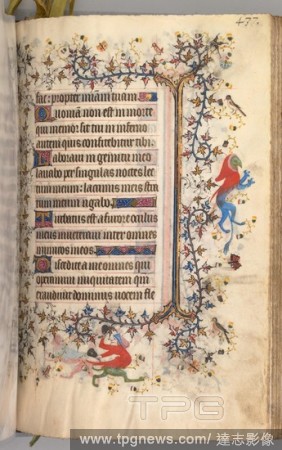 477.
fac: propter miam tuam
Quoniam non est in morte
qui memor sit tui in inferno
autem quis confitebitur tibi.
Laboraui in gemitu meo
lauabo per singulas noctes lec
tum meum: lacrimis meis stra
tum meum rigabo.
Turbatus est a furore oculus
meus inueteraui inter omnes
inimicos meos.
Discedite a me omnes qui
operamini iniquitatem qm
exaudiuit dominus uocem fle
TPG
www.tpgnews.com/ 達志影像